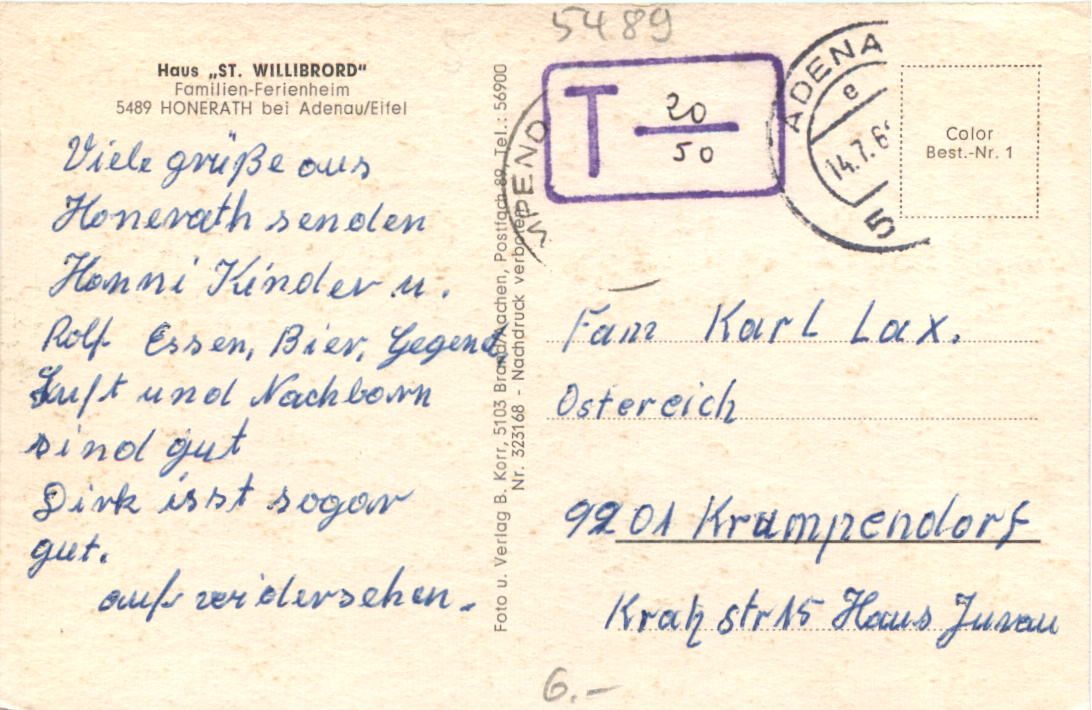 5489
Haus „ST. WILLIBRORD"
Familien-Ferienheim
5489 HONERATH bei Adenau/Eifel
Viele grüße aus
Honerath senden
Hanni Kinder u.
Rolf. Essen, Bier, Gegend
Luft und Nachbarn
sind gut
Dirk isst sogar
gut.
auf widersehen.
Foto u. Verlag B. Korr, 5103 Brand/Aachen, Postfach 89, Tel.: 56900
Nr. 323168 - Nachdruck verboten
T 20
50
MPEND
ADENA
e
14.7.6
5
Color
Best.-Nr. 1
Fam Karl Lax.
Östereich
9201 Krumpendorf
str 15 Haus
6.-